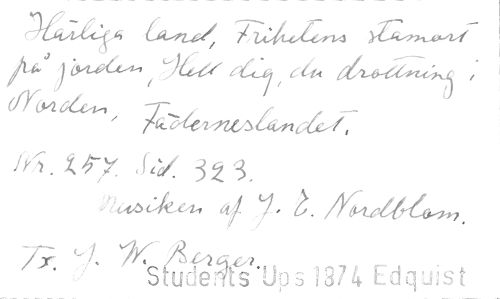 Härliga land, Frihetens stamort
på jorden, Hell dig, du drottning i
Norden, Fäderneslandet.
Nr. 257. Sid. 323.
Musiken af J. E. Nordblom.
Tx. J. W. Berger.
Students Ups 1874 Edquist